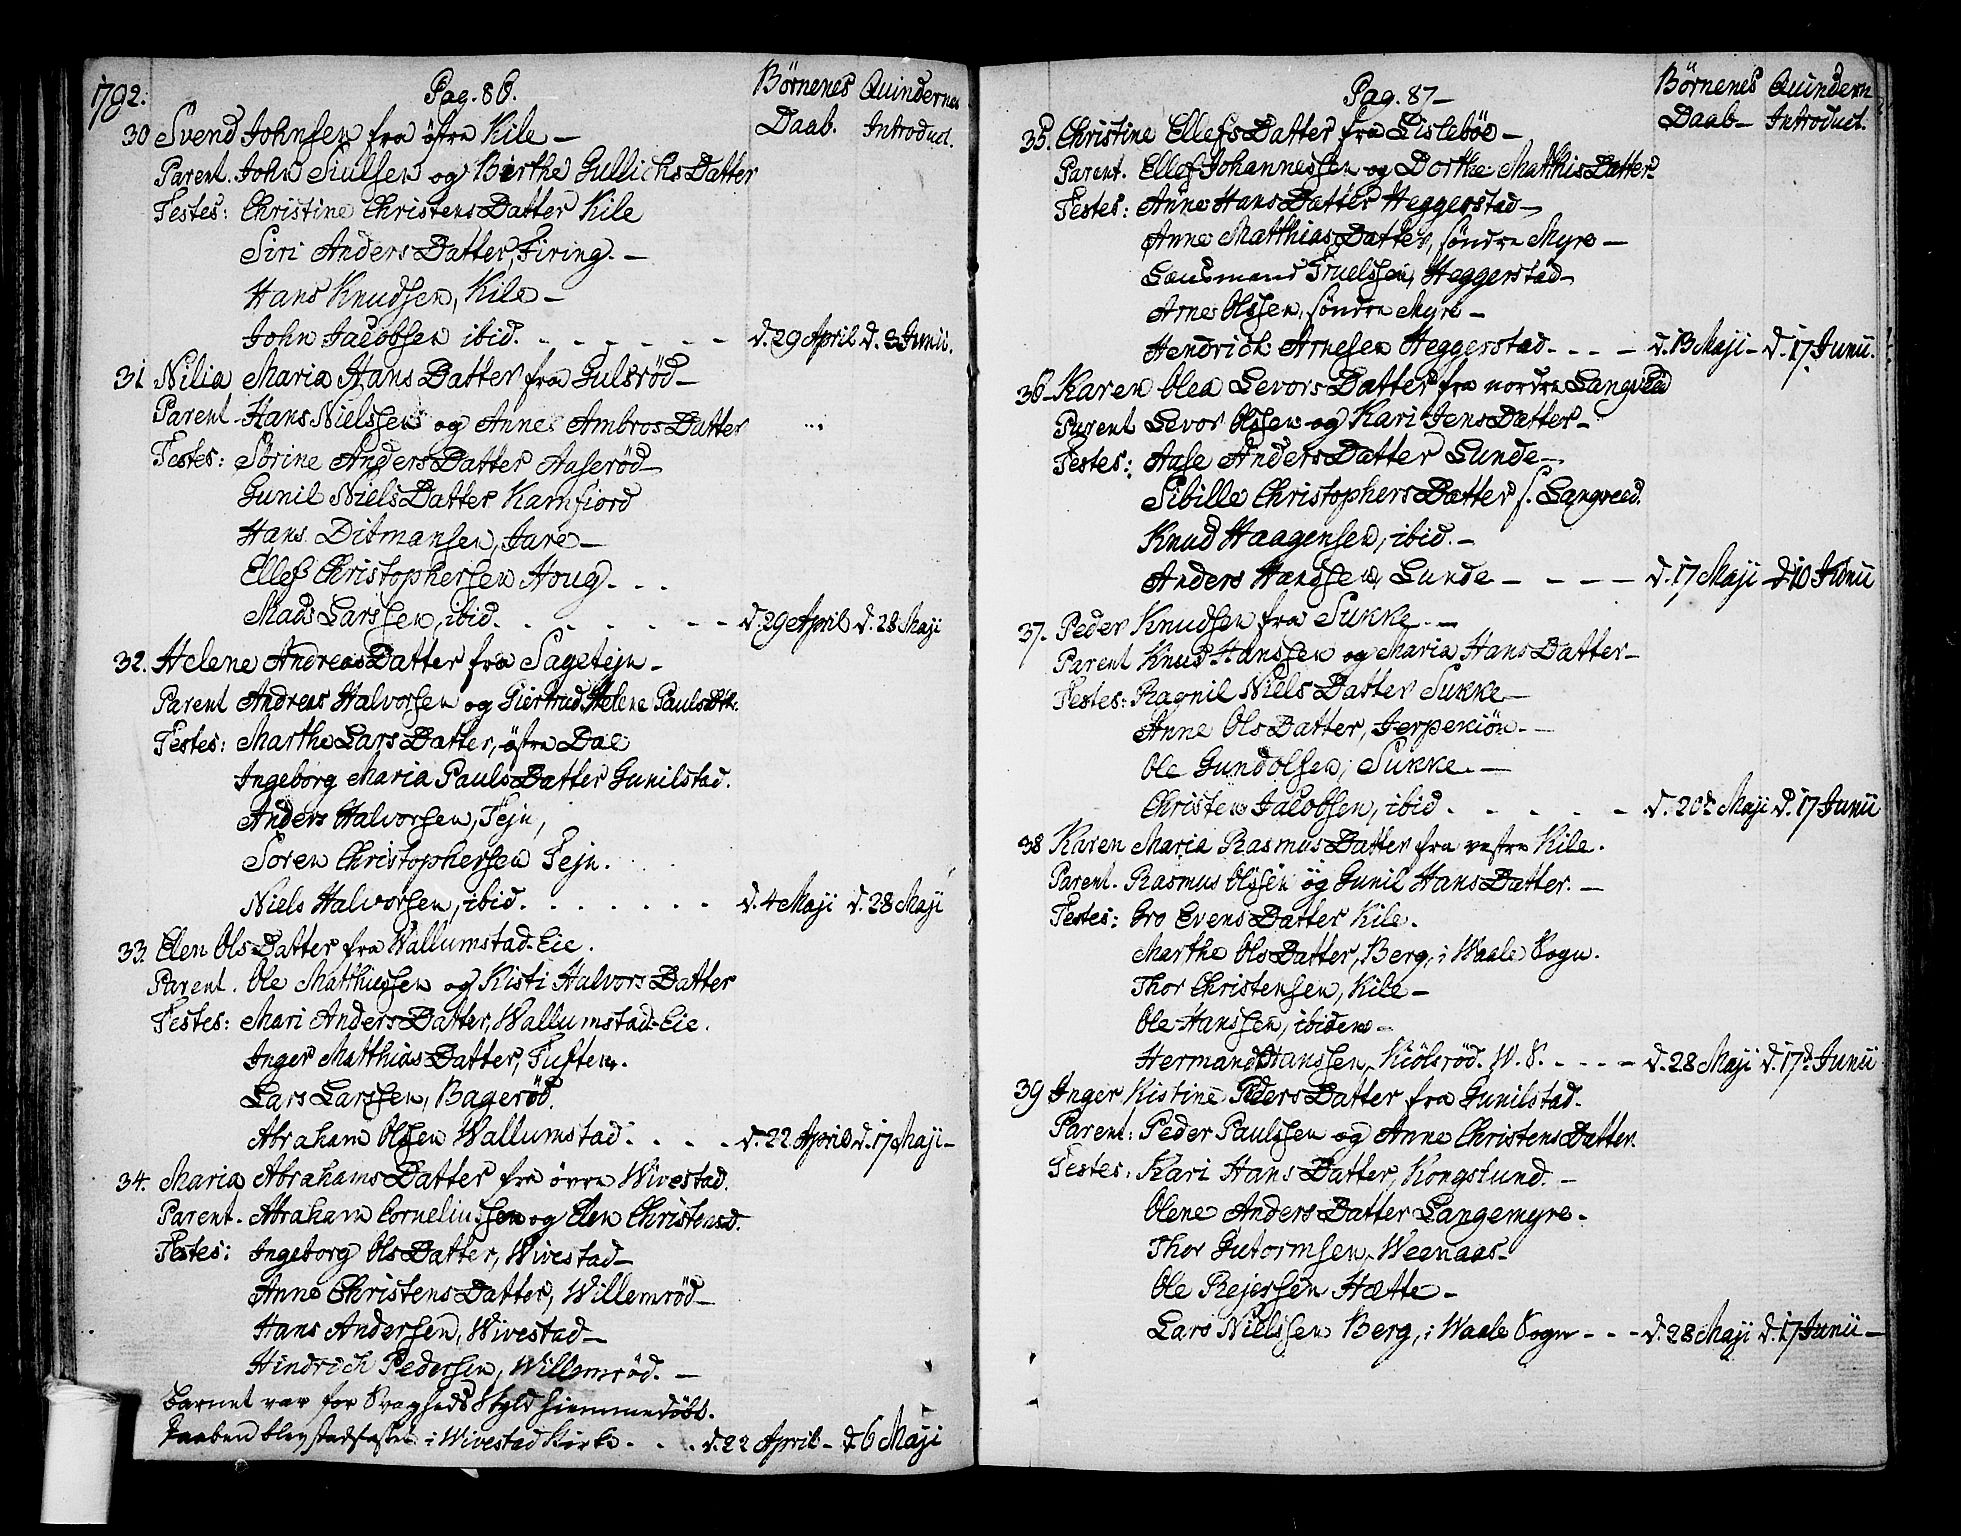 1792.
Pag. 86.
Børnenes Daab.
Quindernes Introduct.
30 Svend Johnsen fra østre Kile –
Parent. John Siulsen og Birthe Gullichs Datter
Testes: Christine Christens Datter Kile
Siri Anders Datter, Firing. –
Hans Knudsen, Kile –
John Jacobsen ibid. . – – – – – – d. 29 April d. 3 Junii.
31 Nilia Maria Hans Datter fra Gulsrød –
Parent. Hans Nielssen og Anne Ambros Datter
Testes: Sørine Anders Datter Aaserød –
Gunil Niels Datter Kamfiord
Hans Ditmansen, Jare –
Ellef Christophersen Houg. . .
Mads Larssen, ibid. . . . . . – – d. 29 April d. 28 Maji
32. Helene Andreas Datter fra Sagetejn –
Parent Andreas Halvorsen og Giertrud Helene Pauls Dtr.
Testes: Marthe Lars Datter, østre Dal
Ingeborg Maria Pauls Datter Gunilstad.
Anders Halvorsen, Tejn,
Soren Christophersen Tejn.
Niels Halvorsen, ibid. . . . . . . . d. 4 Maji d. 28 Maji
33. Elen Ols Datter fra Wallumstad-Eie.
Parent. Ole Matthiessen og Kisti Halvors Datter
Testes: Mari Anders Datter, Wallumstad-Eie.
Inger Matthias Datter, Tuften.
Lars Larssen, Bagerød.
Abraham Olssen Wallumstad. . . . . d. 22 April d. 17 Maji –
34. Maria Abrahams Datter fra øvre Wivestad.
Parent. Abraham Corneliussen og Elen Christensd.
Testes: Ingeborg Ols Datter, Wivestad –
Anne Christens Datter, Willemrød –
Hans Andersen, Wivestad –
Hindrich Pedersen, Willemrød. –
Barnet var for Svagheds Skyld hiemmedøbt.
Daaben blev stadfæstet i Wivestad Kirke. . . . d. 22 April – d. 6 Maji
Pag. 87 –
Børnenes Daab –
Quindern Introduct.
35. Christine Ellefs Datter fra Lislebøe –
Parent. Ellef Johannessen og Dorthe Matthis Datter –
Testes: Anne Hans Datter Heggerstad –
Anne Matthias Datter, søndre Myre –
Lensmand Truelssen, Heggerstad –
Arne Olssen, søndre Myre –
Hendrich Arnesen Heggerstad. – – – d. 13 Maji – d. 17 Junii.
36 – Karen Olea Levors Datter fra nordre Langved
Parent Levor Olssen og Kari Jens Datter –
Testes: Aase Anders Datter Lunde –
Sibille Christophers Datter s. Langveed.
Knud Haagensen, ibid. –
Anders Handsen, Lunde – – – – d. 17 Maji – d 10 Junii
37. Peder Knudsen fra Sukke. –
Parent Knud Hanssen og Maria Hans Datter –
Testes: Ragnil Niels Datter Sukke –
Anne Ols Datter, Jerpekiøn. –
Ole Gundolsen, Sukke. –
Christen Jacobsen, ibid . . . . . – d. 20de Maji d. 17 Junii
38 Karen Maria Rasmus Datter fra vestre Kile.
Parent. Rasmus Olssen og Gunil Hans Datter. –
Testes: Gro Evens Datter Kile.
Marthe Ols Datter, Berg, i Waale Sogn.
Thor Christensen, Kile –
Ole Hanssen, ibidem –
Hermand Hanssen, Kiölsrød. W. S. . . . – d. 28 Maji d. 17de Junii
39 Inger Kistine Peders Datter fra Gunilstad.
Parent: Peder Paulssen og Anne Christens Datter.
Testes: Kari Hans Datter, Kongslund. –
Olene Anders Datter Langemyre.
Thor Gutormsen, Weenaas –
Ole Rejersen Hætte –
Lars Nielssen Berg, i Waale Sogn – – – d. 28 Maji d. 17 Junii –